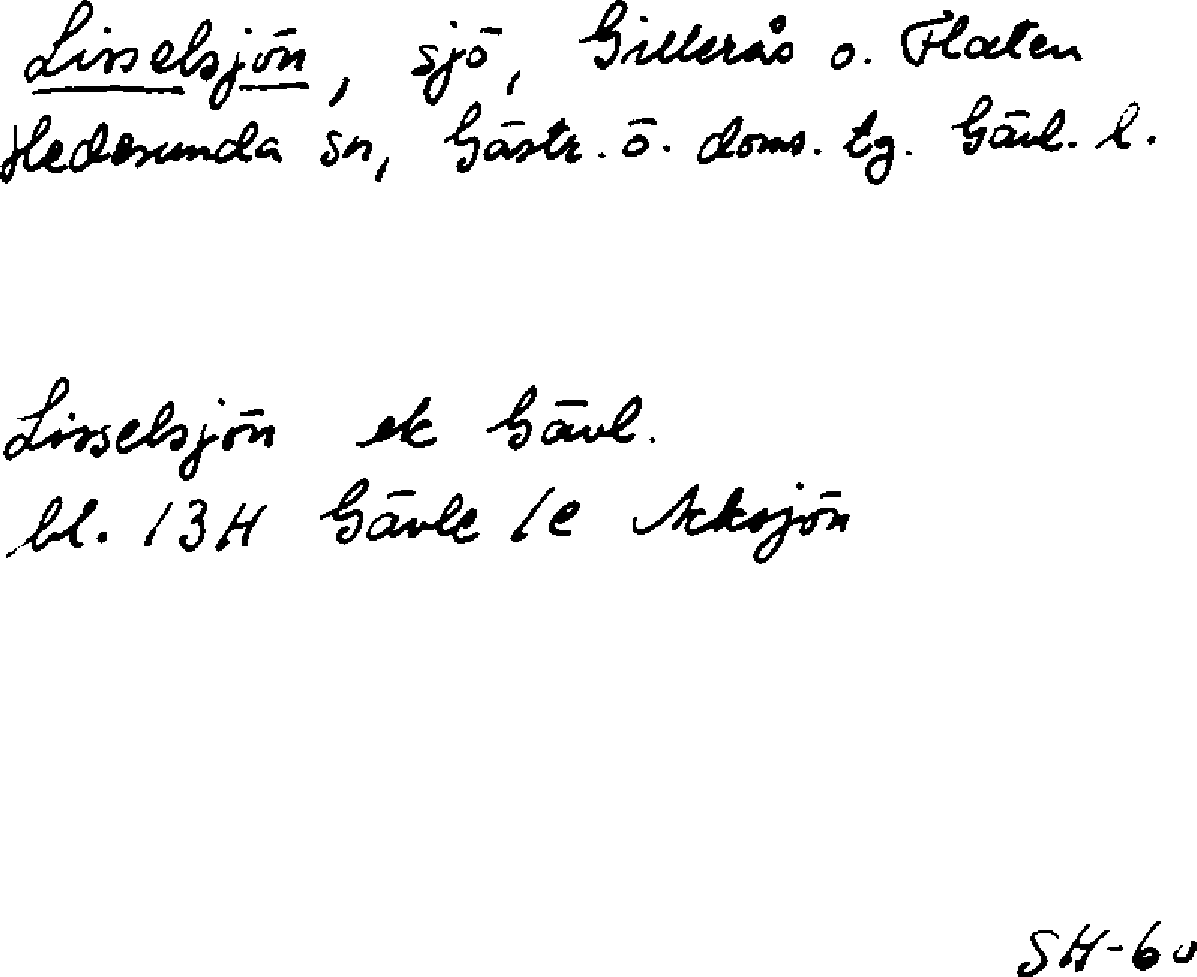 Lisselsjön, sjö, Gillerås o. Flaten
Hedesunda sn, Gästr. ö. doms. tg. Gävl. l.
Lisselsjön ek Gävl.
bl. 13H Gävle 1e Acksjön
SH-60